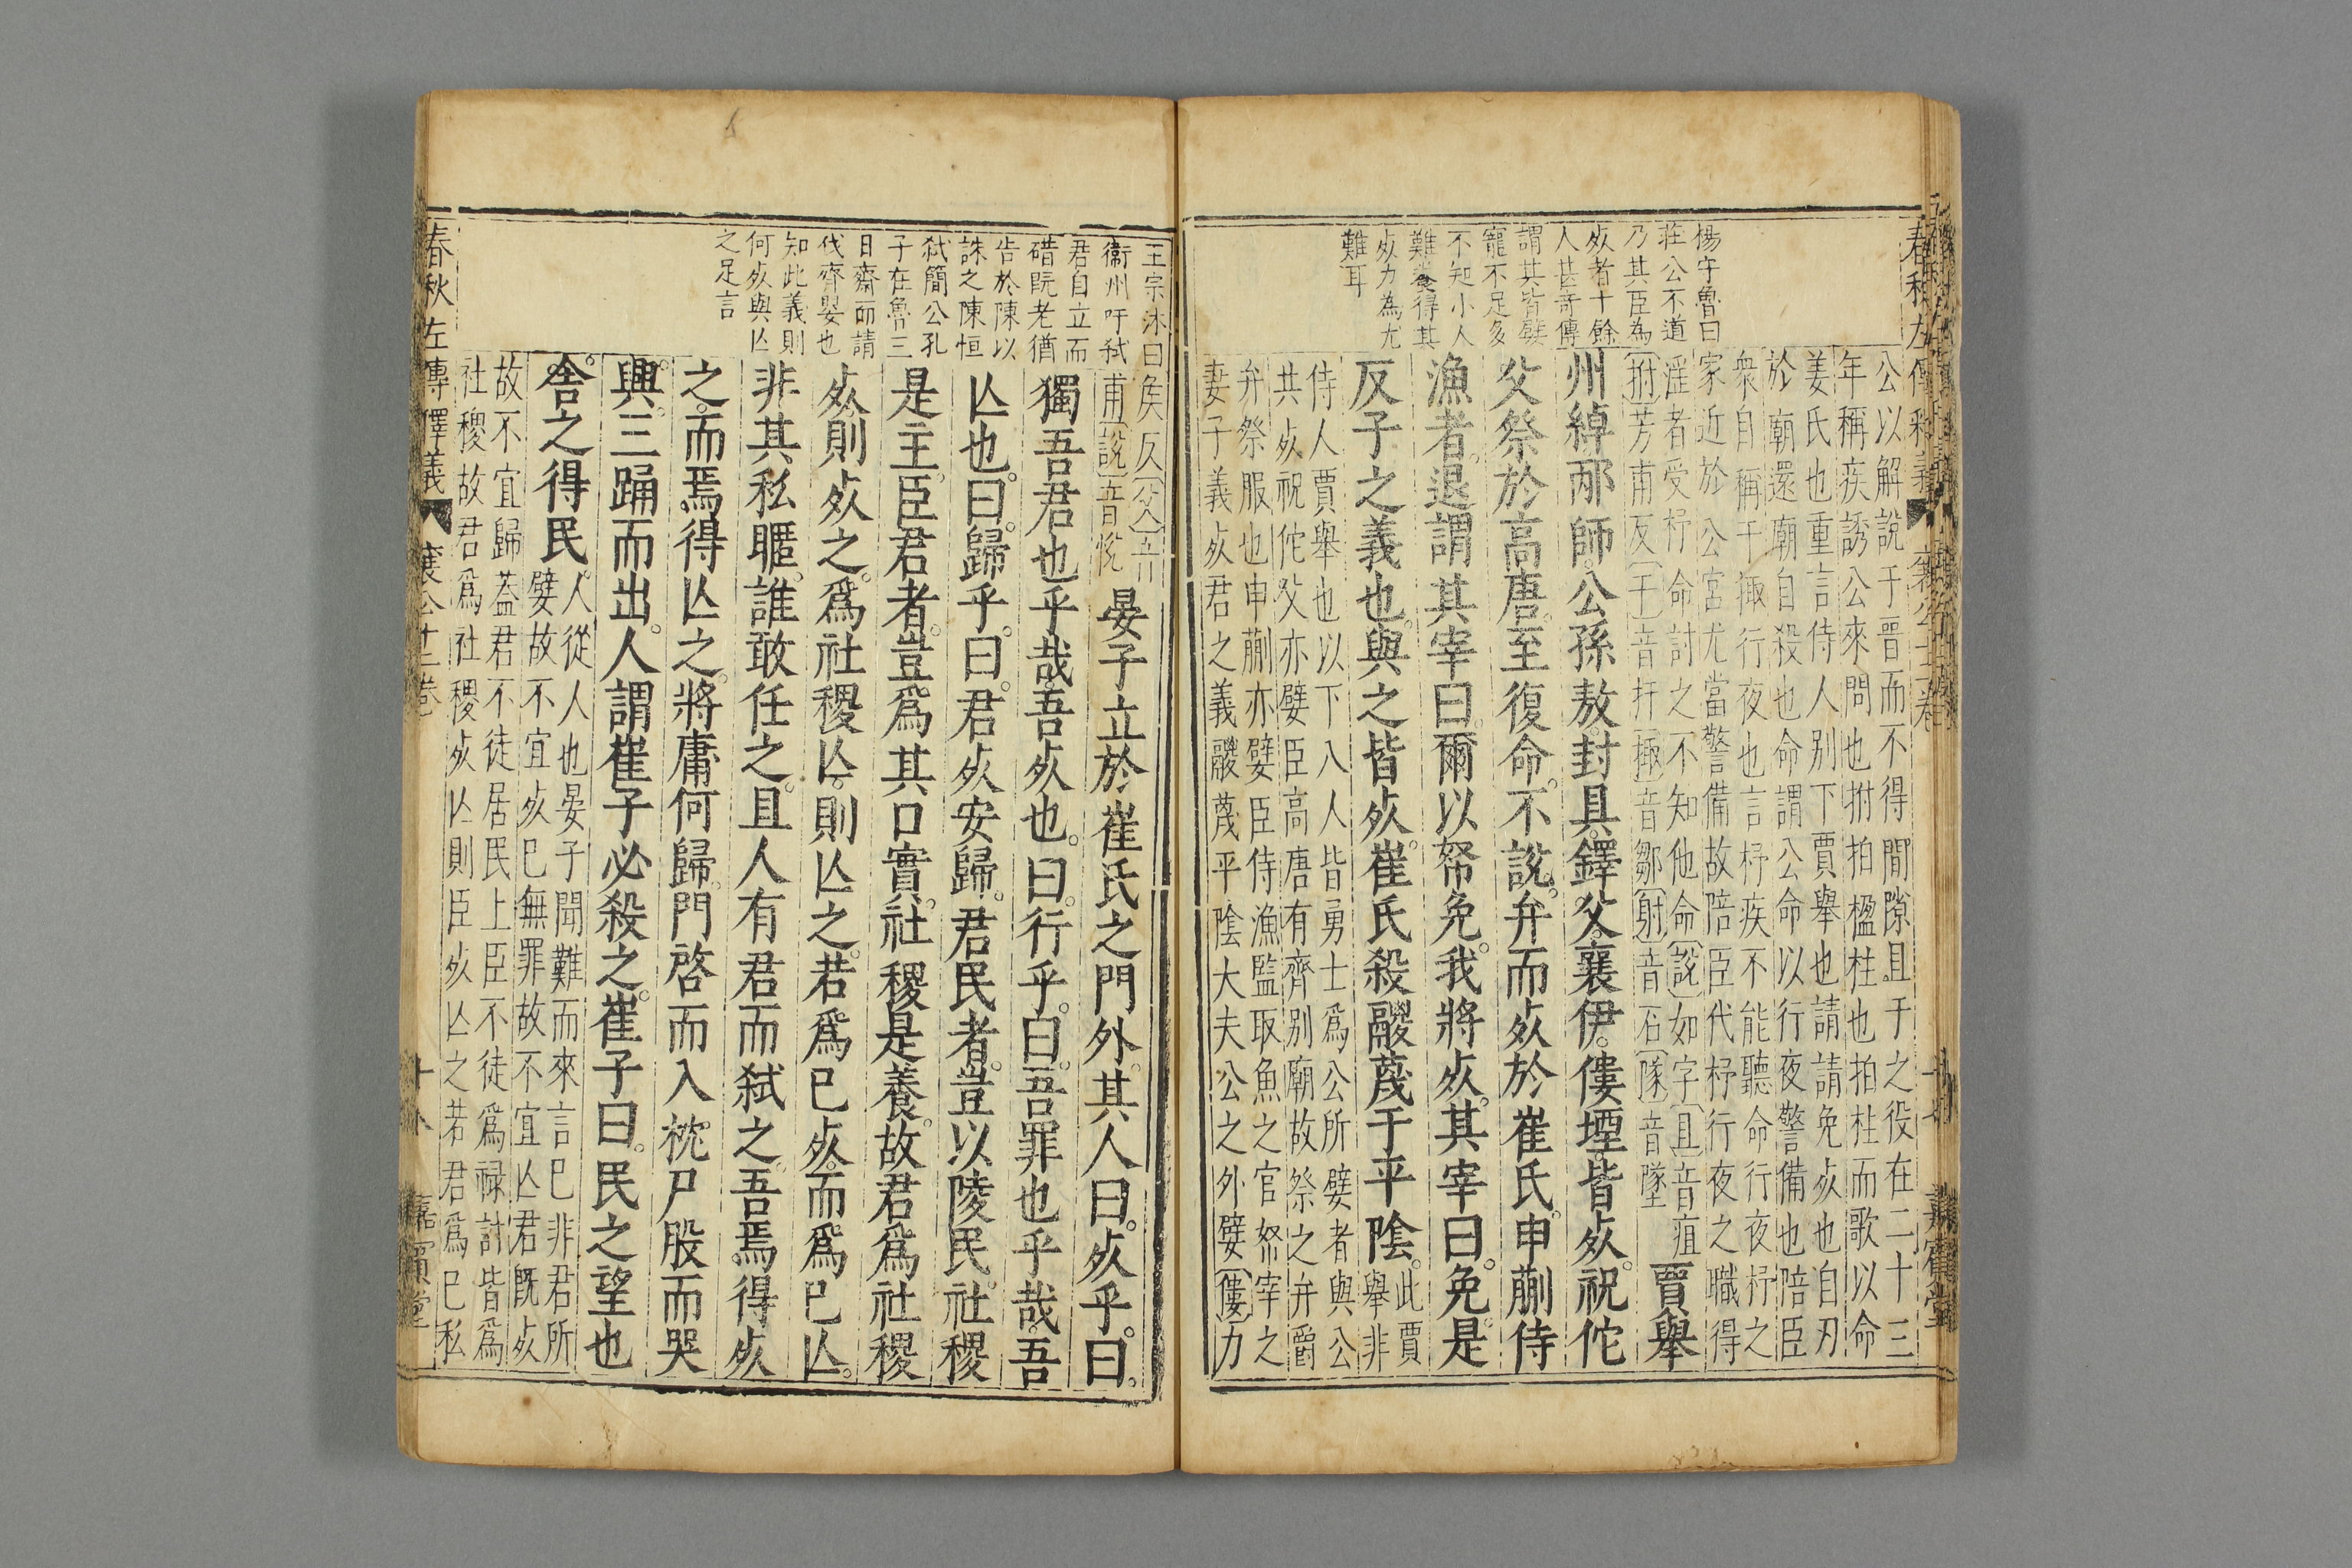 春秋左傳釋義
襄公十二卷
嘉賓堂
楊守魯曰
莊公不道
乃其臣為
死者十餘
人甚奇傳
謂其皆嬖
寵不足多
不知小人
難養得其
死力為尤
難耳
公以解說于晋而不得間隙且于之役在二十三
年稱疾誘公來問也拊拍楹柱也拍柱而歌以命
姜氏也重言侍人别下賈舉也請請免死也自刃
於廟還廟自殺也命謂公命以行夜警備也陪臣
衆自稱干掫行夜也言杼疾不能聽命行夜杼之
家近於公宮尤當警備故陪臣代杼行夜之職得
淫者受杼命討之不知他命〔說〕如字〔且〕音疽
〔拊〕芳甫反〔干〕音扞〔掫〕音鄒〔射〕音石〔隊〕音墜
賈舉
州綽邴師。公孫敖。封具。鐸父。襄伊。僂堙。皆死。祝佗
父祭於高唐。至復命。不說弁而死於崔氏。申蒯侍
漁者。退謂其宰曰。爾以帑免。我將死。其宰曰。免。是
反子之義也。與之皆死。崔氏殺鬷蔑于平陰。
此賈
舉非
侍人賈舉也以下八人皆勇士爲公所嬖者與公
共死祝佗父亦嬖臣高唐有齊别廟故祭之弁爵
弁祭服也申蒯亦嬖臣侍漁監取魚之官帑宰之
妻子義死君之義鬷蔑平陰大夫公之外嬖〔僂〕力
王宗沐曰
衞州吁弑
君自立而
碏旣老猶
告於陳以
誅之陳恒
弑簡公孔
子在魯三
日齋而請
伐齊嬰也
知此義則
何死與亾
之足言
矦反〔父〕音
甫〔說〕音悅
晏子立於崔氏之門外。其人曰。死乎。曰。
獨吾君也乎哉。吾死也。曰。行乎。曰。吾罪也乎哉。吾
亾也。曰。歸乎。曰。君死安歸。君民者。豈以陵民。社稷
是主。臣君者。豈爲其口實。社稷是養。故君爲社稷
死。則死之。爲社稷亾。則亾之。若爲已死。而爲已亾。
非其私暱。誰敢任之。且人有君而弑之。吾焉得死
之。而焉得亾之。將庸何歸。門啓而入。枕尸股而哭
興。三踊而出。人謂崔子必殺之。崔子曰。民之望也
舍之得民。
人從人也晏子聞難而來言已非君所
嬖故不宜死已無罪故不宜亾君旣死
故不宜歸葢君不徒居民上臣不徒爲祿討皆爲
社稷故君爲社稷死亾則臣死亾之若君爲已私
春秋左傳釋義
襄公十二卷
十八
嘉賓堂